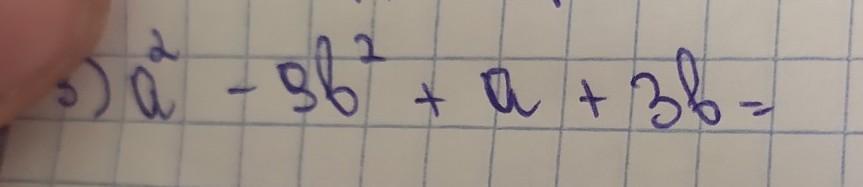 3) a² - 9b² + a + 3b =